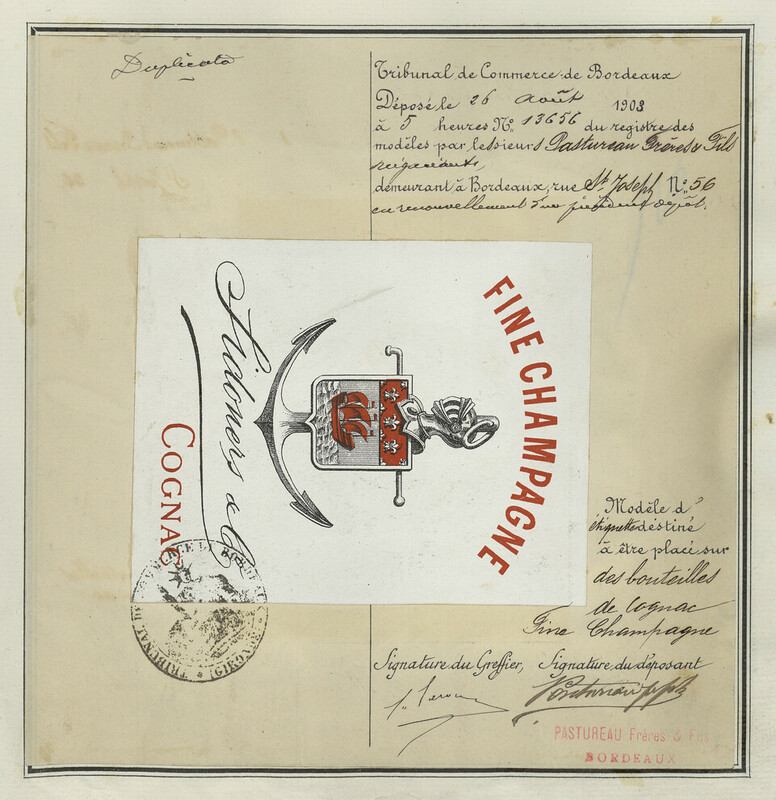 Duplicata
Tribunal de Commerce de Bordeaux
Déposé le 26 août 1903
à 5 heures No. 13656 du registre des
modèles par les sieurs Pastureau Frères & Fils
négociants,
demeurant à Bordeaux, rue St. Joseph No. 56
en renouvellement d'un précédent dépôt.
FINE CHAMPAGNE
& Co
COGNAC
Modèle d'
étiquette destiné
à être placé sur
des bouteilles
de cognac
Fine Champagne
Signature du Greffier, Signature du déposant
TRIBUNAL DE COMMERCE DE BORDEAUX
PASTUREAU Frères & Fils
BORDEAUX